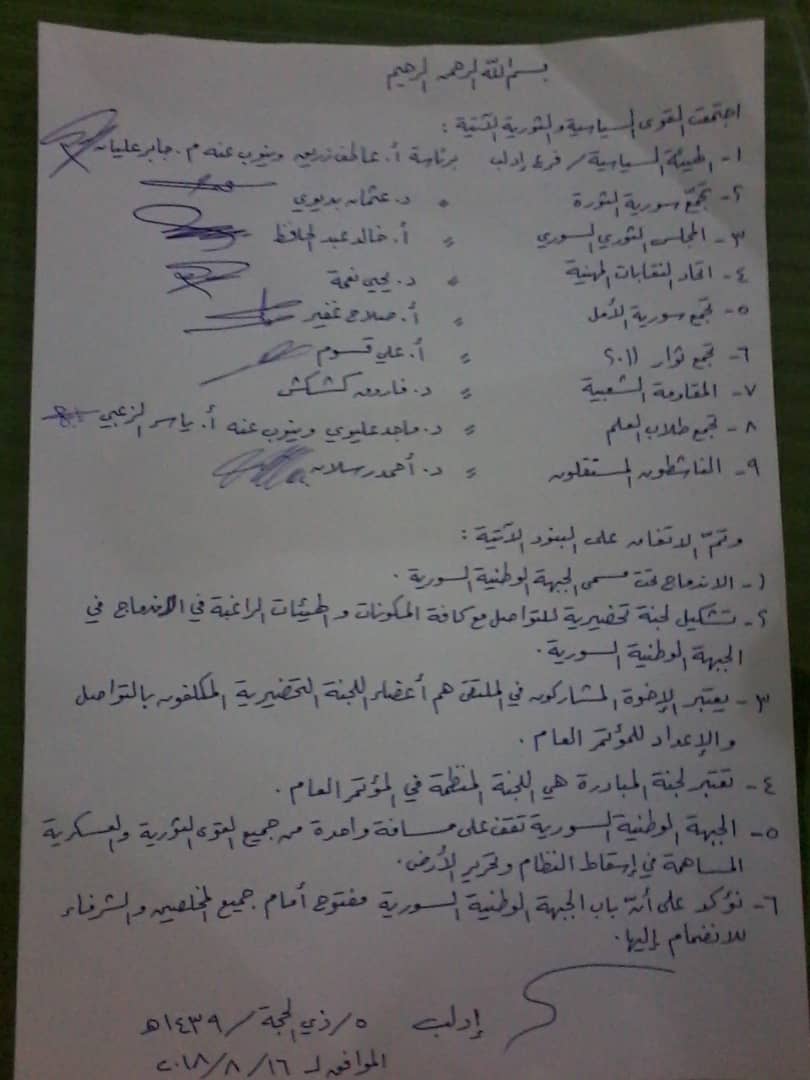 بسم الله الرحمن الرحيم
اجتمعت القوى السياسية والثورية الآتية :
١- الهيئة السياسية / فرع إدلب برئاسة أ. عاطف زريق وينوب عنه م. جابر عليان
٢- تجمّع سورية الثورة " د. عثمان بديوي
٣- المجلس الثوري السوري " أ. خالد عبد الحافظ
٤- اتحاد النقابات المهنية " د. يحيى نعمة
٥- تجمع سورية الأمل " أ. صلاح غفير
٦- تجمع ثوار ٢٠١١ " أ. علي قسوم
٧- المقاومة الشعبية " د. فاروق كشكش
٨- تجمع طلاب العلم " د. ماجد عليوي وينوب عنه أ. ياسر الزعبي
٩- الناشطون المستقلون " د. أحمد رسلان
وتمّ الاتفاق على البنود الآتية :
١- الاندماج تحت مسمى الجبهة الوطنية السورية .
٢- تشكيل لجنة تحضيرية للتواصل مع كافة المكونات والهيئات الراغبة في الاندماج في
الجبهة الوطنية السورية .
٣- يعتبر الإخوة المشاركون في الملتقى هم أعضاء اللجنة التحضيرية المكلفون بالتواصل
والإعداد للمؤتمر العام .
٤- تعتبر لجنة المبادرة هي اللجنة المنظمة في المؤتمر العام .
٥- الجبهة الوطنية السورية تقف على مسافة واحدة من جميع القوى الثورية والعسكرية
المساهمة في إسقاط النظام وتحرير الأرض .
٦- نؤكد على أنّ باب الجبهة الوطنية السورية مفتوح أمام جميع المخلصين والشرفاء
للانضمام إليها .
إدلب ٥/ ذي الحجة / ١٤٣٩هـ
الموافق لـ ١٦ / ٨ / ٢٠١٨